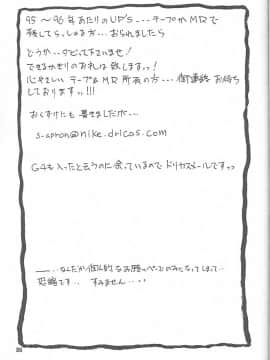 95〜96年あたりのUP'S---テープかMDで
残してらっしゃる方---おられましたら
どうか--ダビって下さいませ!
できるかぎりのお礼は致しますッ!
心やさしいテープ&MD所有の方---御連絡お待ち
しておりますッ!!!
おくずけにも書きましたが---
s-apron@nike.dricas.com
G4も入ったと云うのに余っているのでドリカスメールですッ
---なんだか個人的なお願いページのみになってしまって--
恐縮です-- すみません--・・